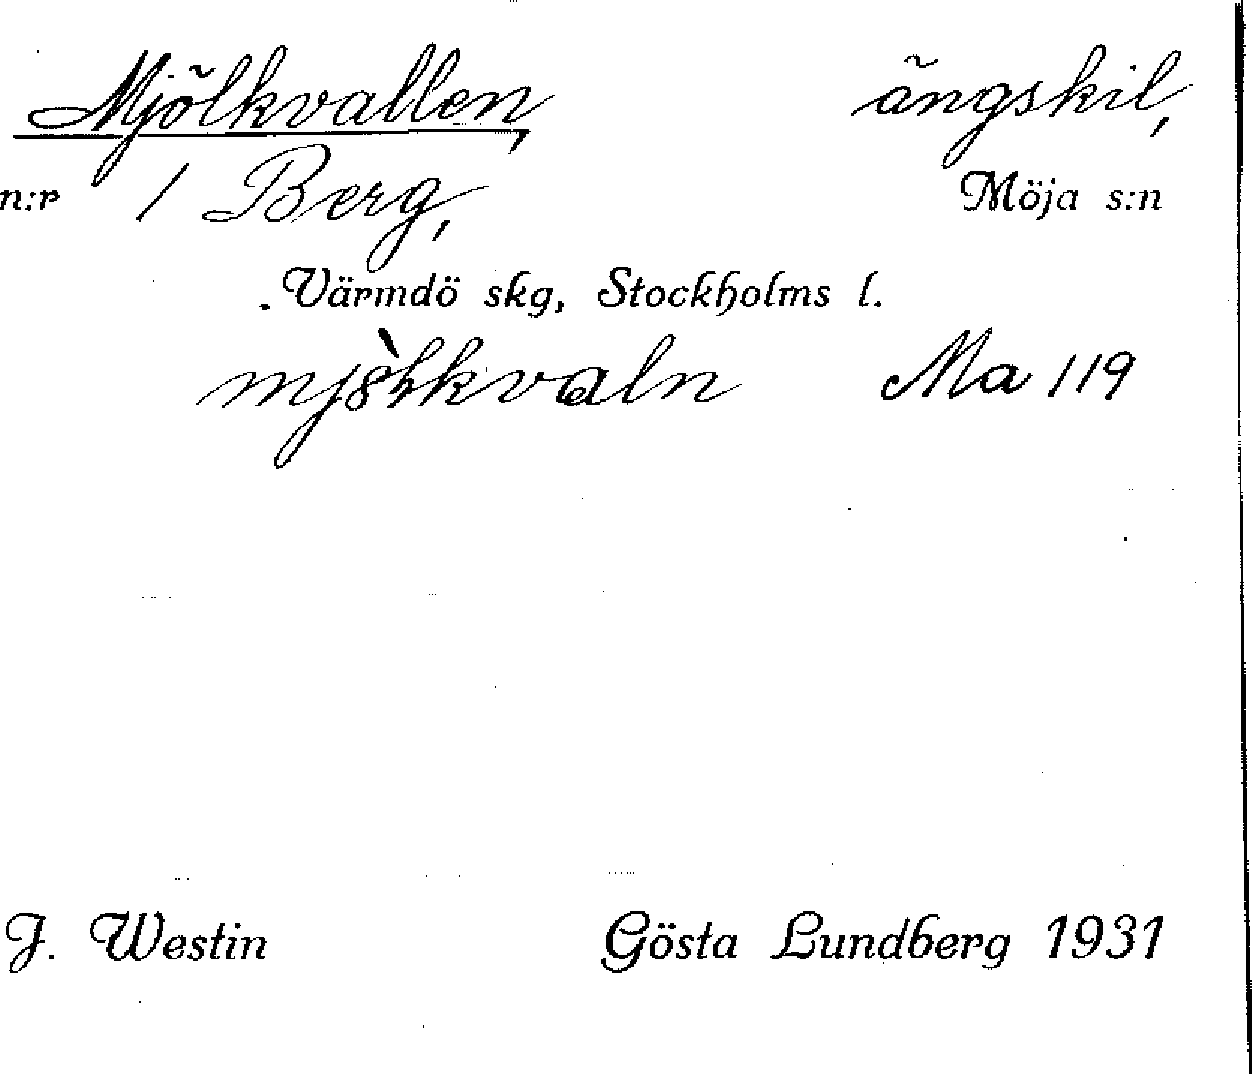 Mjölkvallen, ängskil,
n:r 1 Berg, Möja s:n
Värmdö skg, Stockholms l.
Ma 119
J. Westin Gösta Lundberg 1931